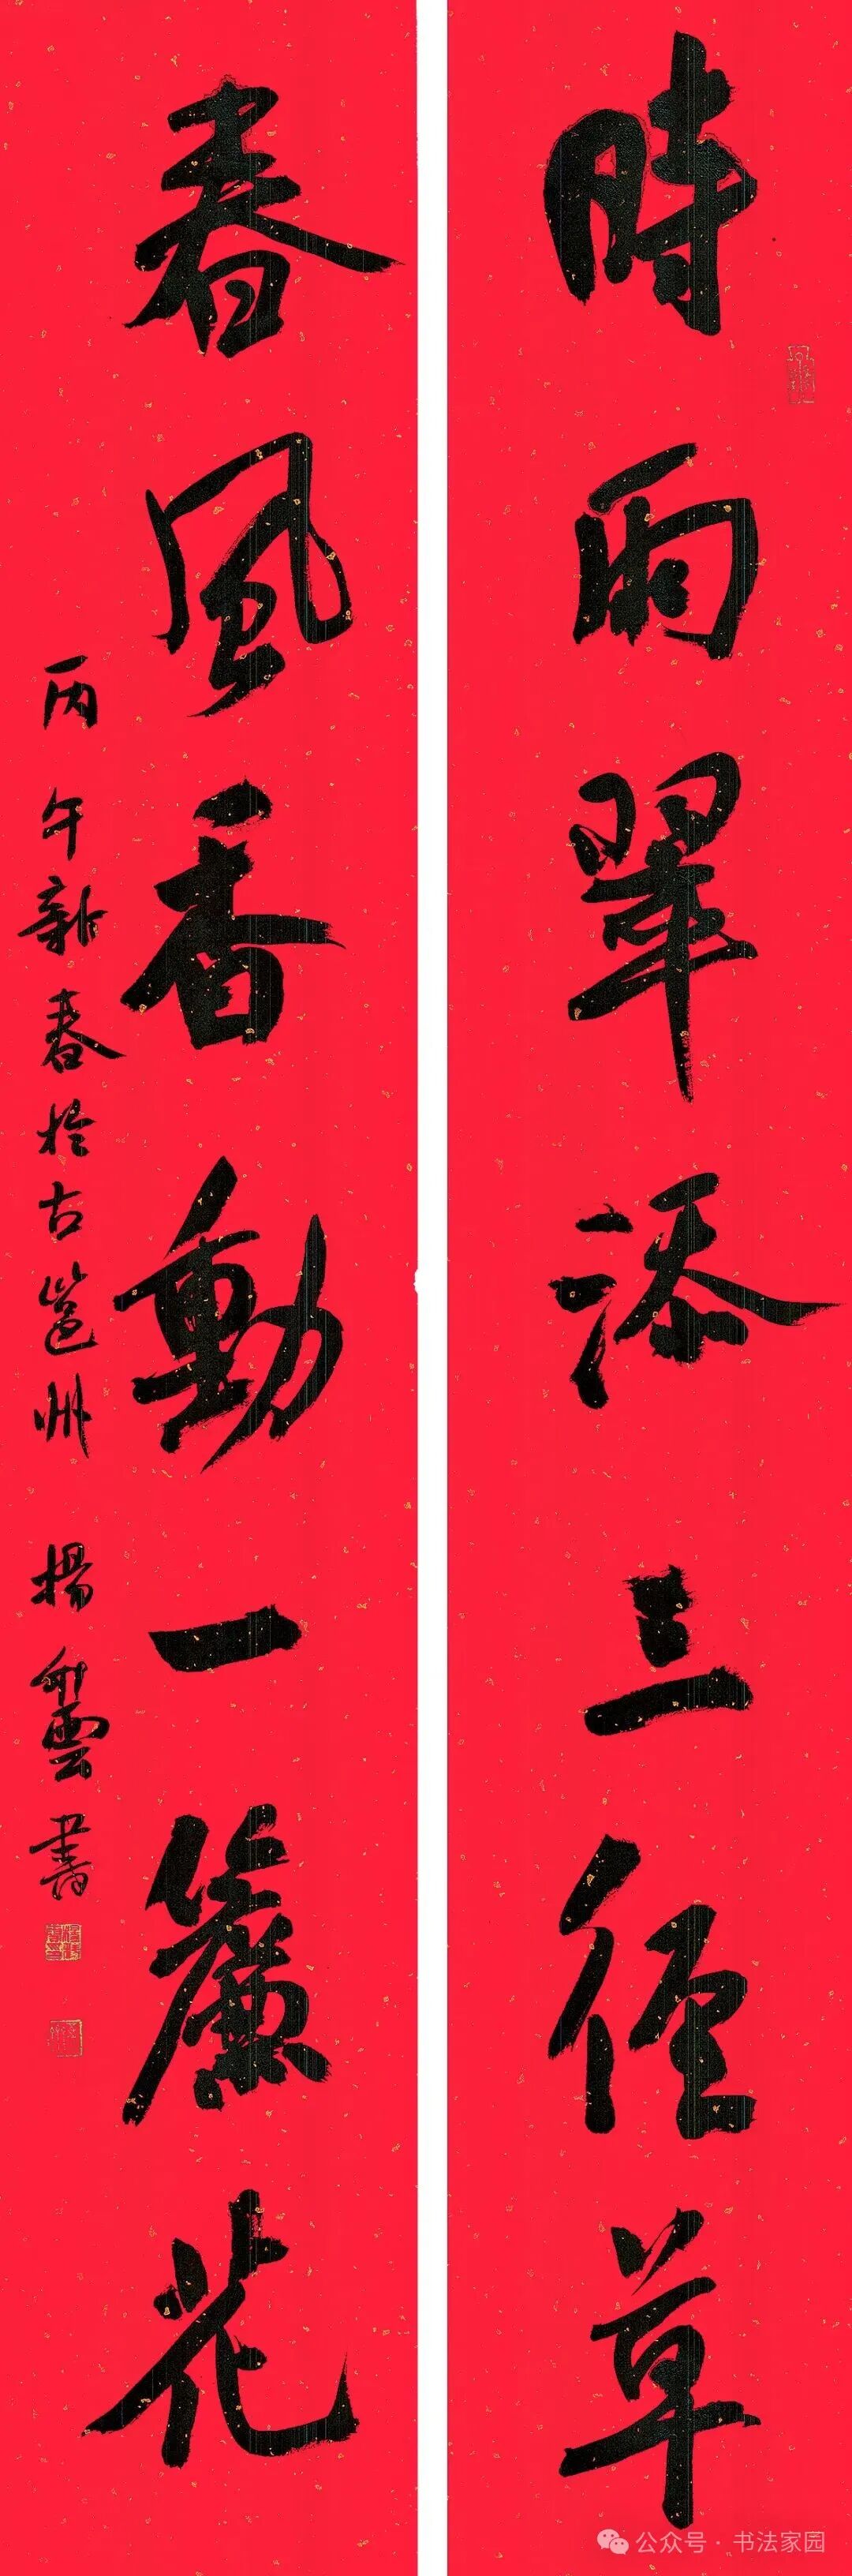 時雨翠添三徑草
春風香動一簾花
丙午新春於古邕州 楊剑雲書
公众号·书法家园